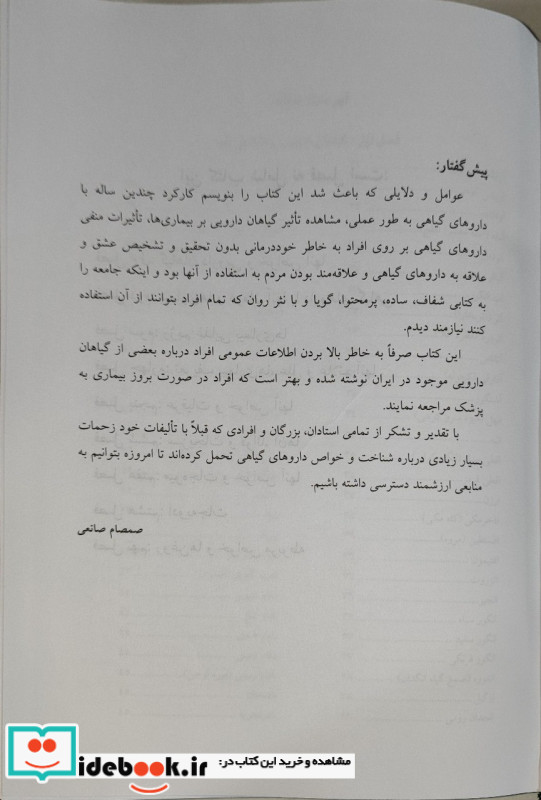 پیش گفتار:
عوامل و دلایلی که باعث شد این کتاب را بنویسم کارکرد چندین ساله با
داروهای گیاهی به طور عملی، مشاهده تأثیر گیاهان دارویی بر بیماری‌ها، تأثیرات منفی
داروهای گیاهی بر روی افراد به خاطر خوددرمانی بدون تحقیق و تشخیص عشق و
علاقه به داروهای گیاهی و علاقه‌مند بودن مردم به استفاده از آنها بود و اینکه جامعه را
به کتابی شفاف، ساده، پرمحتوا، گویا و با نثر روان که تمام افراد بتوانند از آن استفاده
کنند نیازمند دیدم.
این کتاب صرفاً به خاطر بالا بردن اطلاعات عمومی افراد درباره بعضی از گیاهان
دارویی موجود در ایران نوشته شده و بهتر است که افراد در صورت بروز بیماری به
پزشک مراجعه نمایند.
با تقدیر و تشکر از تمامی استادان، بزرگان و افرادی که قبلاً با تألیفات خود زحمات
بسیار زیادی درباره شناخت و خواص داروهای گیاهی تحمل کرده‌اند تا امروزه بتوانیم به
منابعی ارزشمند دسترسی داشته باشیم.
صمصام صانعی
مشاهده و خرید این کتاب در:
idebook.ir